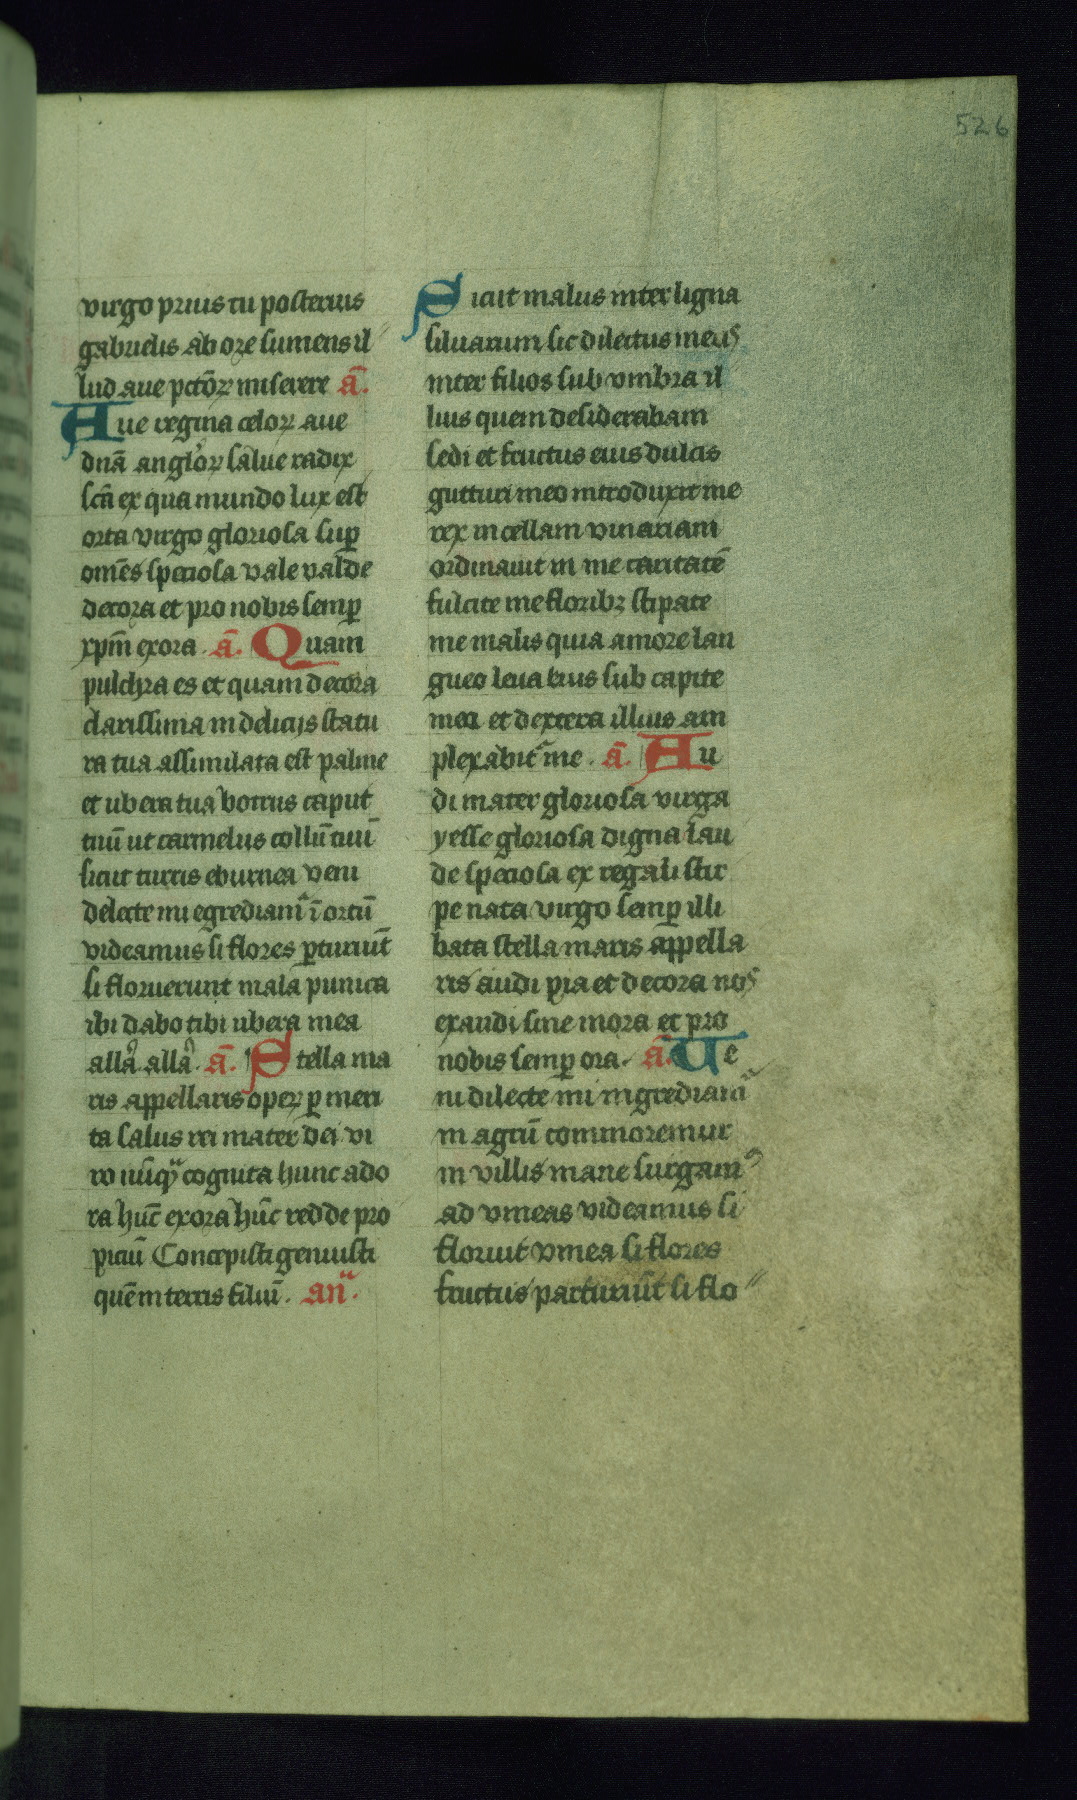 526
virgo prius tu posterius
gabrielis ab ore sumens il
lud aue pctōꝝ miserere ā.
Aue regina celoꝝ aue
dnā angloꝝ salue radix
scā ex qua mundo lux est
orta virgo gloriosa suꝑ
omēs speciosa vale valde
decora et pro nobis semꝑ
xpm̄ exora . ā. Quam
pulchra es et quam decora
carissima in delicijs statu
ra tua assimilata est palme
et ubera tua botrus caput
tuū ut carmelus collū tuū
sicut turris eburnea veni
delecte mi egrediamʳ ī ortū
videamus si flores ꝑturiūt
si floruerunt mala punica
ibi dabo tibi ubera mea
alla alla . ā. Stella ma
ris appellaris opeꝝ ꝑ meri
ta salus rei mater dei vi
ro nūqᵃ cognita hunc ado
ra hūc exora hūc redde pro
piciū Concepisti genuisti
quē in terris filiū . anᵃ.
Sicut malus inter ligna
siluarum sic dilectus meꝰ
inter filios sub vmbra il
lius quem desiderabam
sedi et fructus eius dulcis
gutturi meo introduxit me
rex in cellam vinariam
ordinauit in me caritatē
fulcite me floribꝫ stipate
me malis quia amore lan
gueo leua eius sub capite
meo et dextera illius am
plexabitʳ me . ā. Au
di mater gloriosa virga
yesse gloriosa digna lau
de speciosa ex regali stir
pe nata virgo semꝑ illi
bata stella maris appella
ris audi pia et decora noꝰ
exaudi sine mora et pro
nobis semꝑ ora . ā. Ue
ni dilecte mi ingrediamʳ
in agrū commoremur
in villis mane surgamꝰ
ad vineas videamus si
floruit vinea si flores
fructus parturiūt si flo